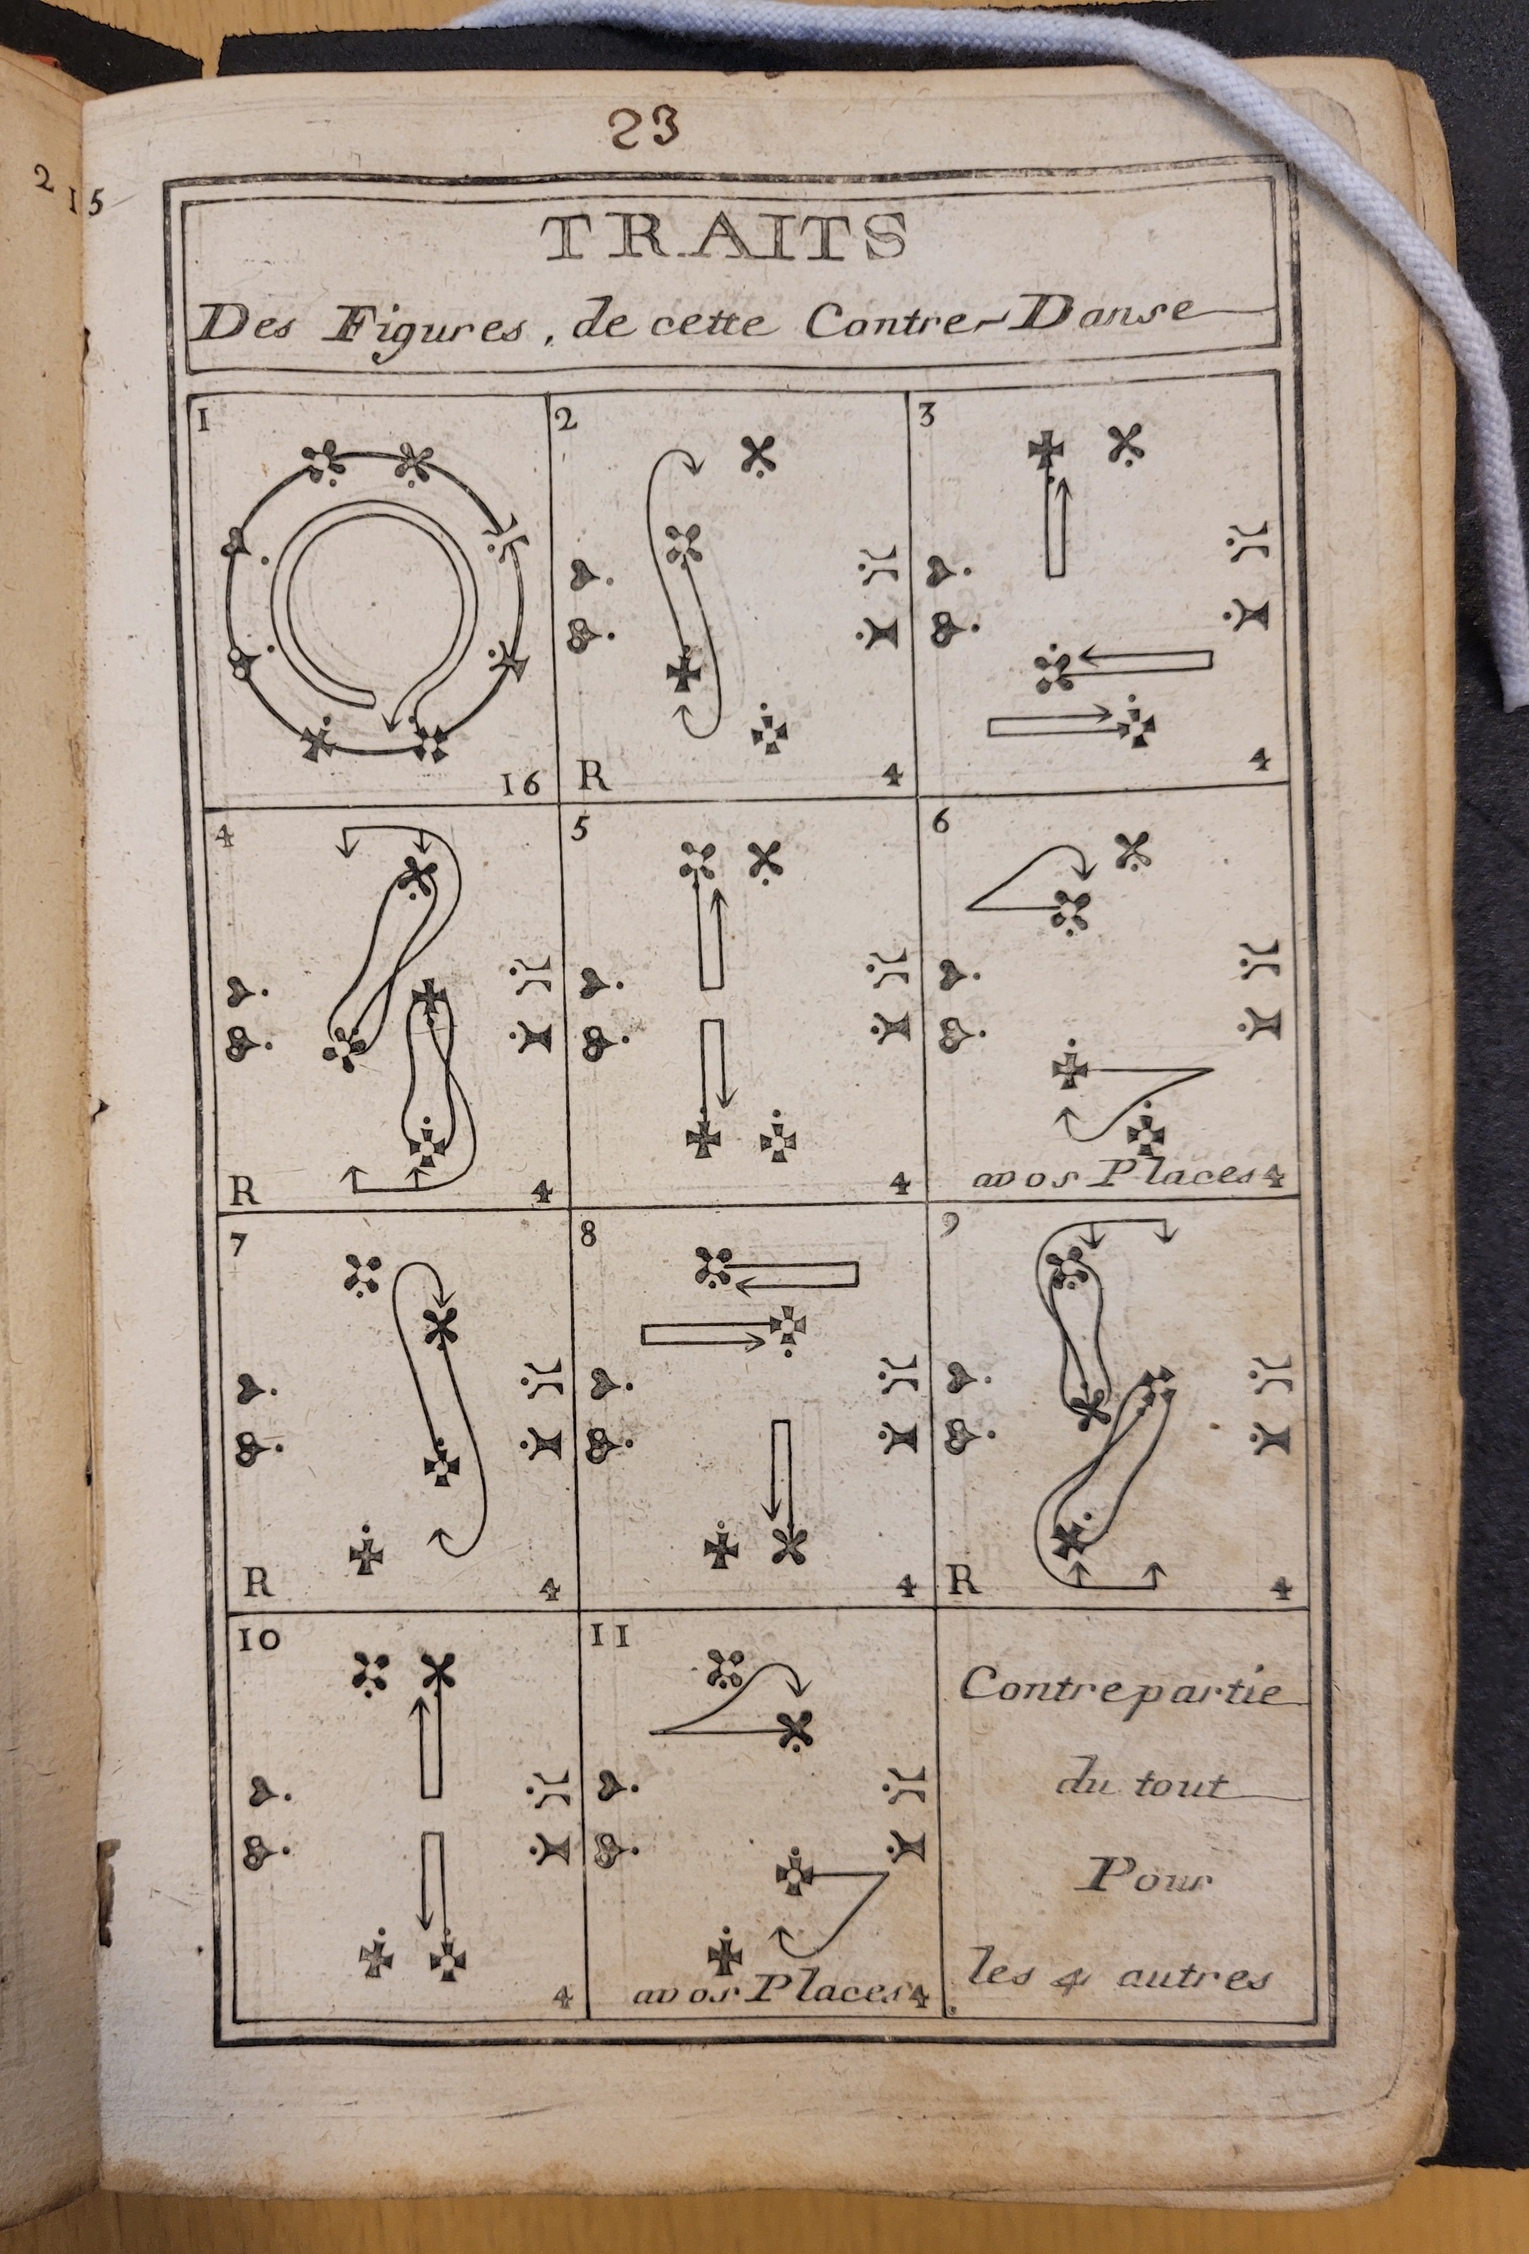 23
2
15
TRAITS
Des Figures, de cette Contre-Danse
1
16
2
R
4
3
4
4
R
4
5
4
6
avos Places 4
7
R
4
8
4
9
R
4
10
4
11
avos Places 4
Contrepartie
du tout
Pour
les 4 autres